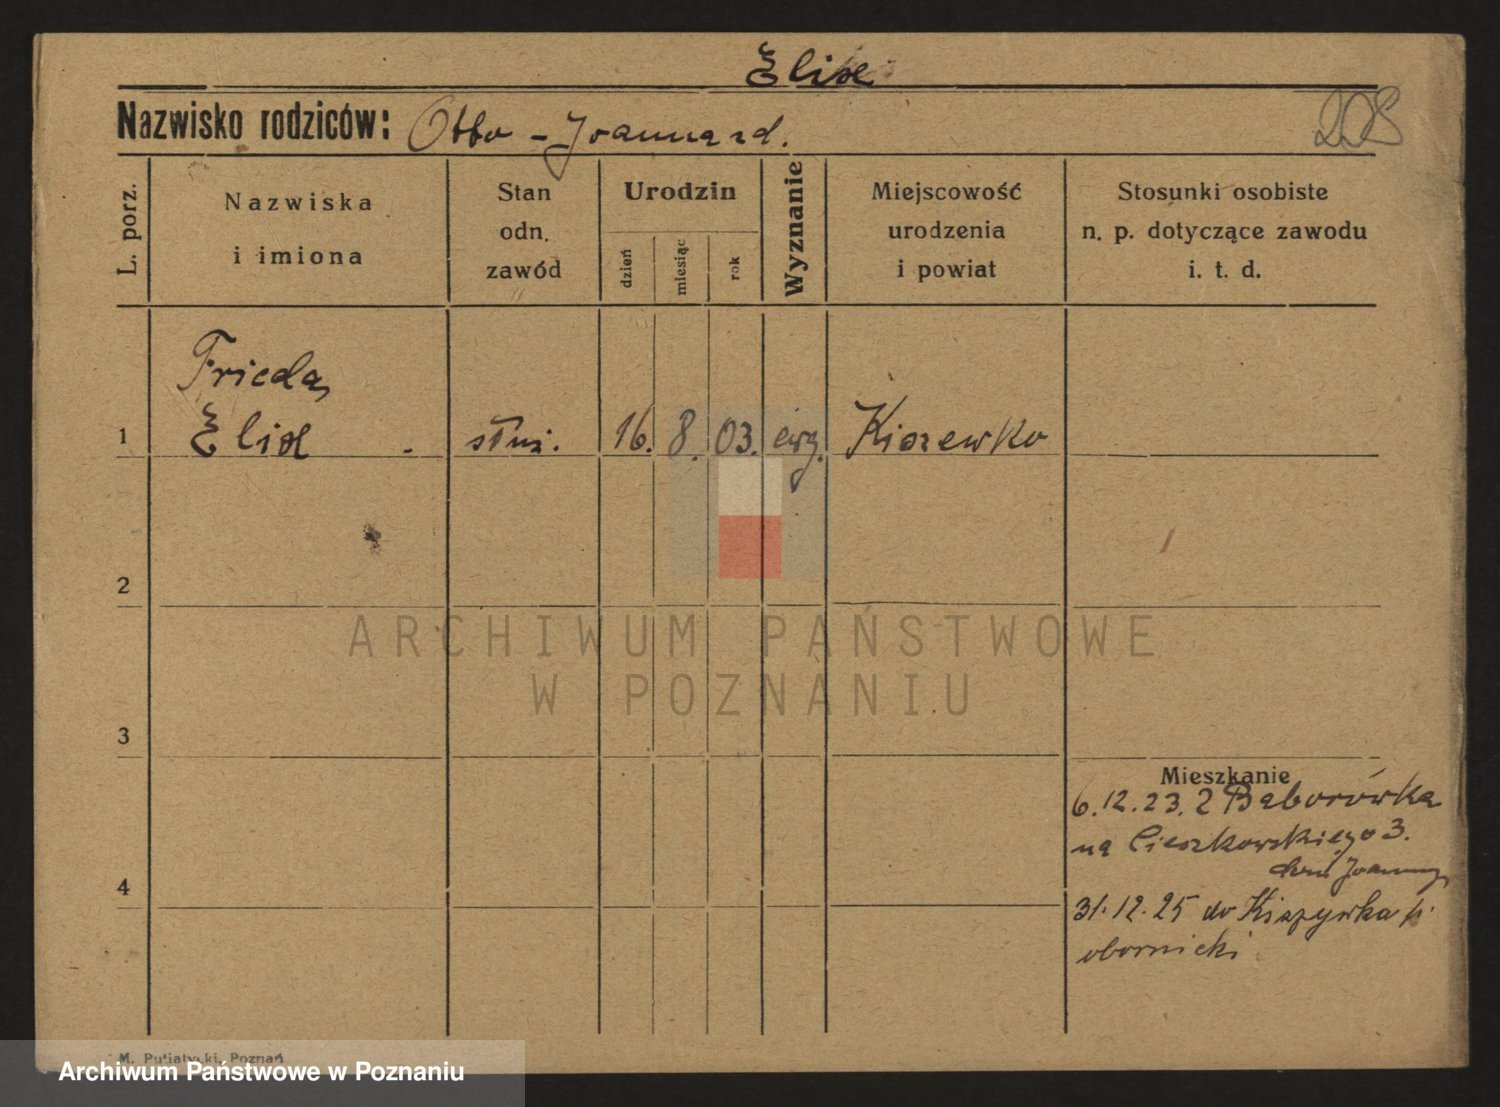 Elise
208
Nazwisko rodziców: Otto - Joanna zd.
L. porz.
Nazwiska
i imiona
Stan
odn.
zawód
Urodzin
dzień
miesiąc
rok
Wyznanie
Miejscowość
urodzenia
i powiat
Stosunki osobiste
n. p. dotyczące zawodu
i. t. d.
Frieda,
1 Elise - służ. 16. 8. 03. ewg. Kiszewko
2
ARCHIWUM PAŃSTWOWE
W POZNANIU
3
Mieszkanie
6.12.23. z Bąborówka
na Cieszkowskiego 3.
Joanny
4
31.12.25 do p.
obornicki
M. Putiatycki, Poznań
Archiwum Państwowe w Poznaniu